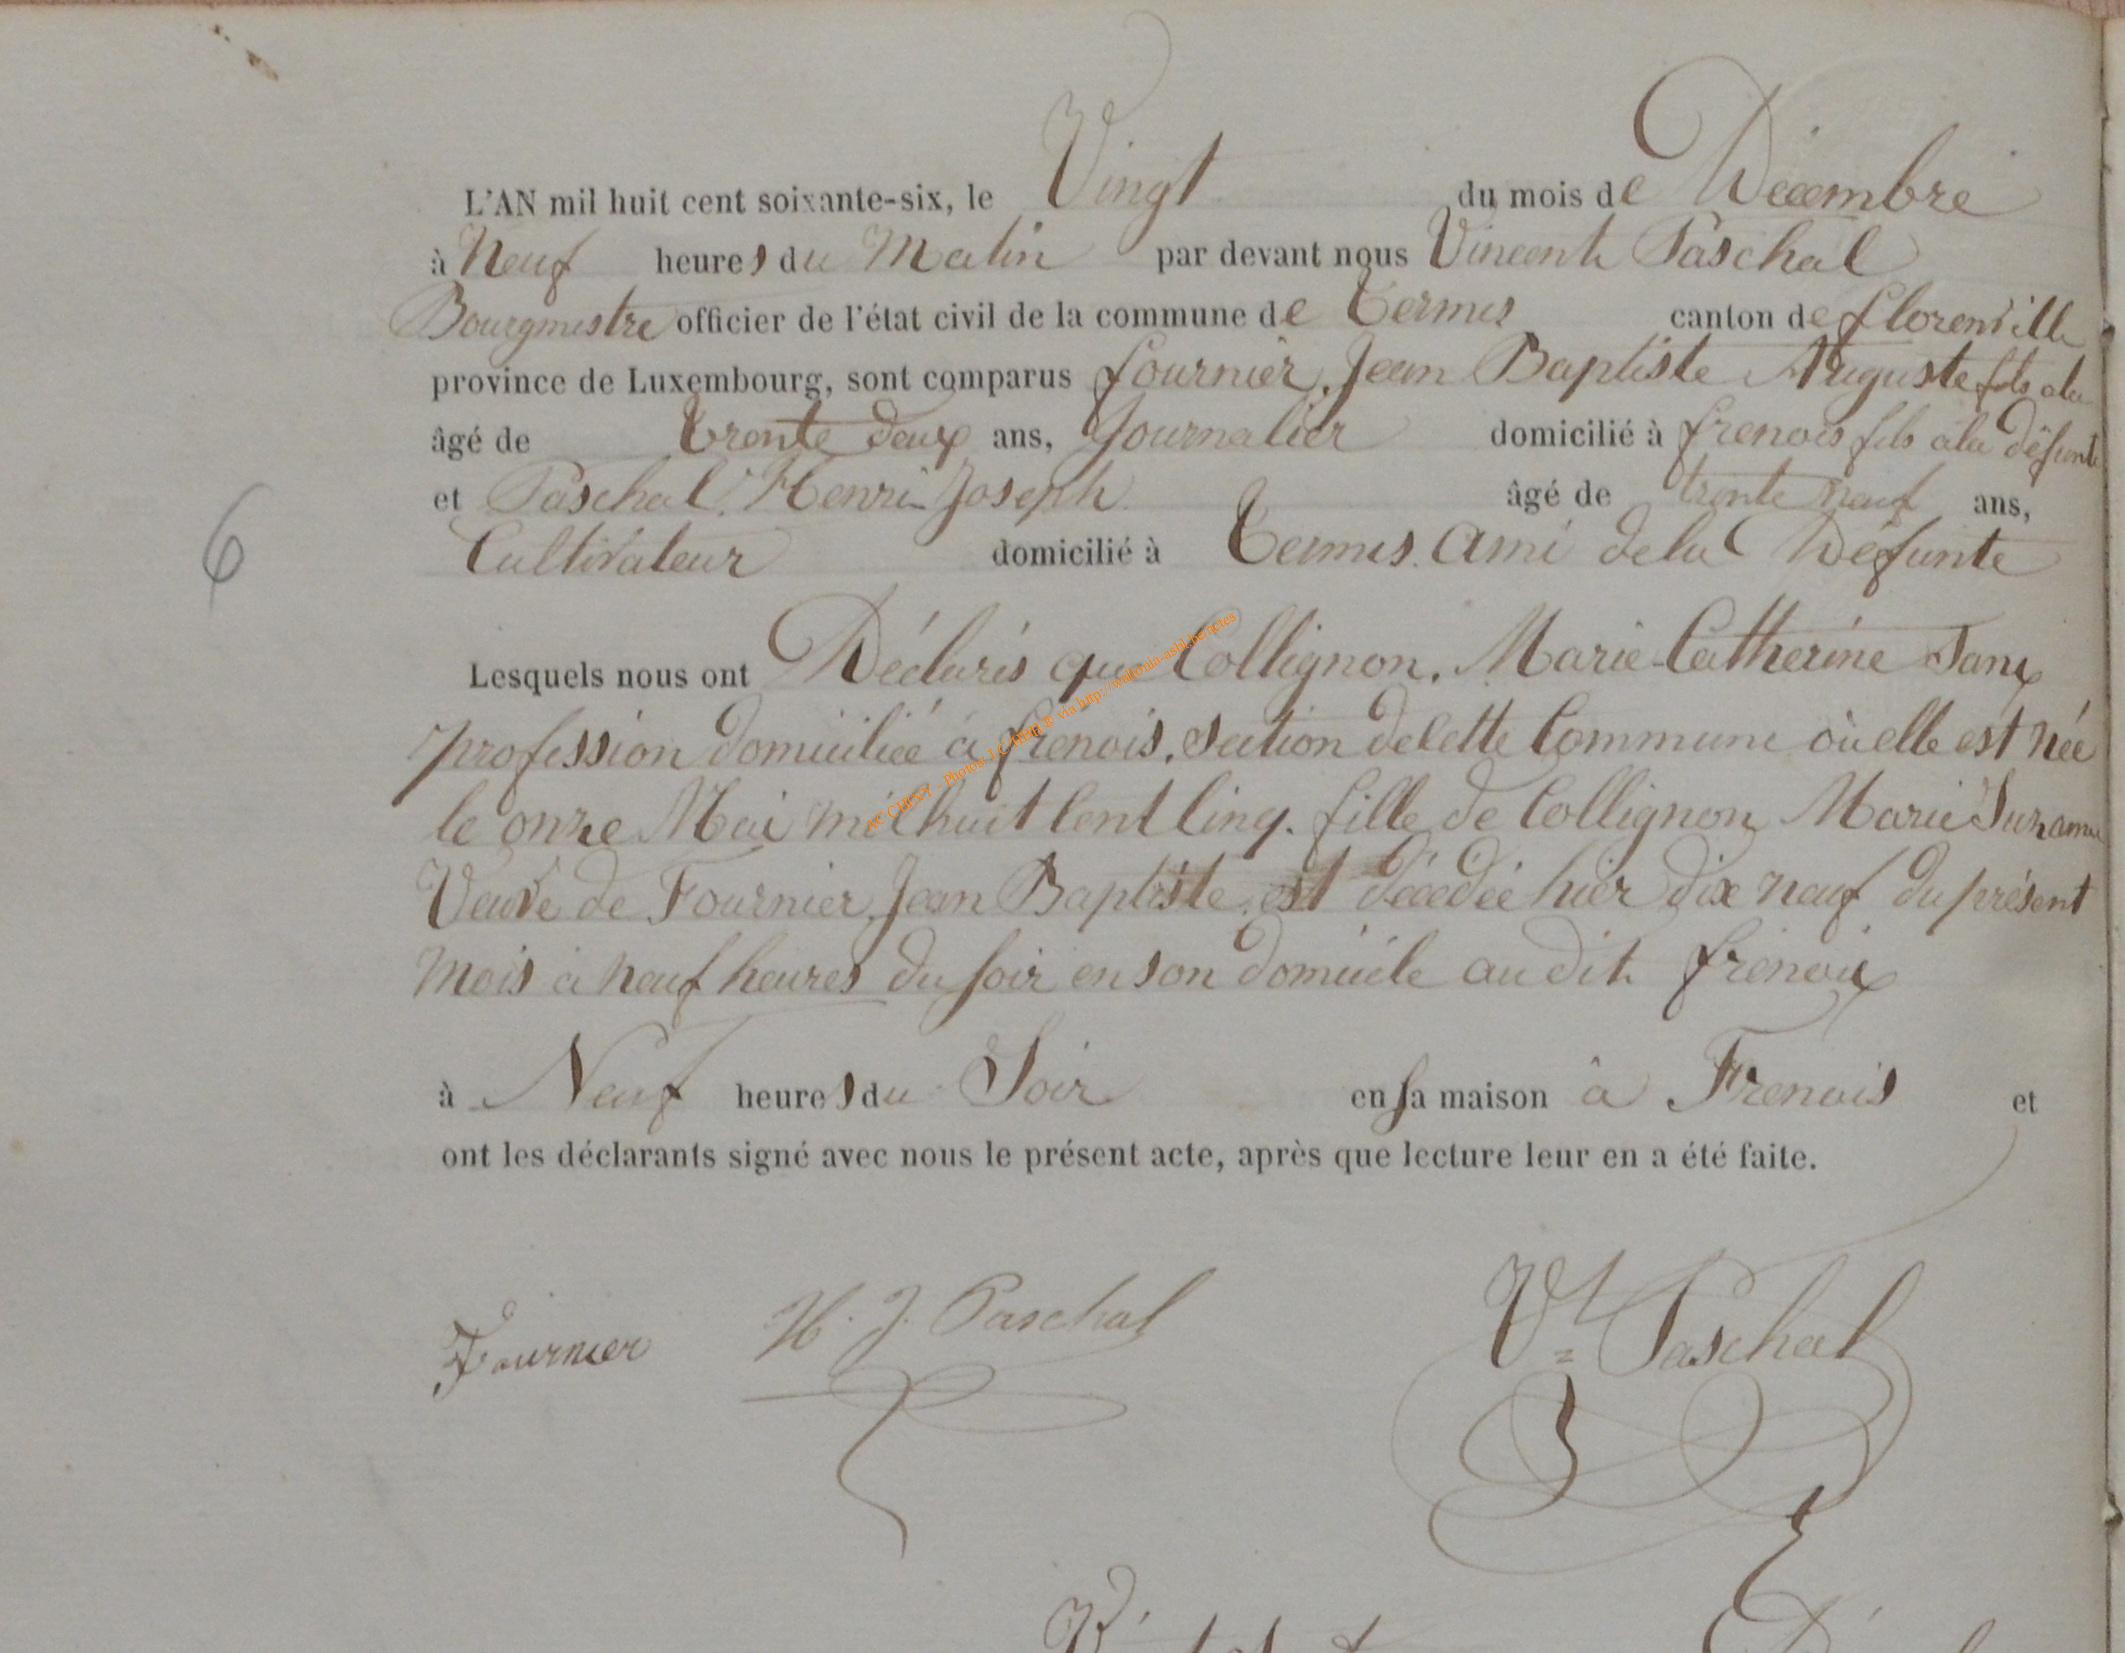 L'AN mil huit cent soixante-six, le Vingt du mois de Décembre
à Neuf heures du Matin par devant nous Vincent Paschal
Bourgmestre officier de l'état civil de la commune de Termes canton de florenville
province de Luxembourg, sont comparus fournier, Jean Baptiste Auguste fils à la
âgé de trente deux ans, Journalier domicilié à frenois fils à la défunte
et Paschal, Henri Joseph âgé de trente neuf ans,
Cultivateur domicilié à Termes. Ami de la Défunte
6
Lesquels nous ont Déclarés que Collignon, Marie-Catherine Sans
profession domiciliée à frenois, Section de cette Commune où elle est née
le onze Mai mil huit Cent Cinq. fille de Collignon Marie Suzanne
Veuve de Fournier, Jean Baptiste, est décédée hier dix neuf du présent
Mois à neuf heures du soir en son domicile au dit frenoix
à Neuf heures du Soir en sa maison à Frenois et
ont les déclarants signé avec nous le présent acte, après que lecture leur en a été faite.
Fournier H. J. Paschal Vt Paschal
via http://wallonia-asbl.be/actes